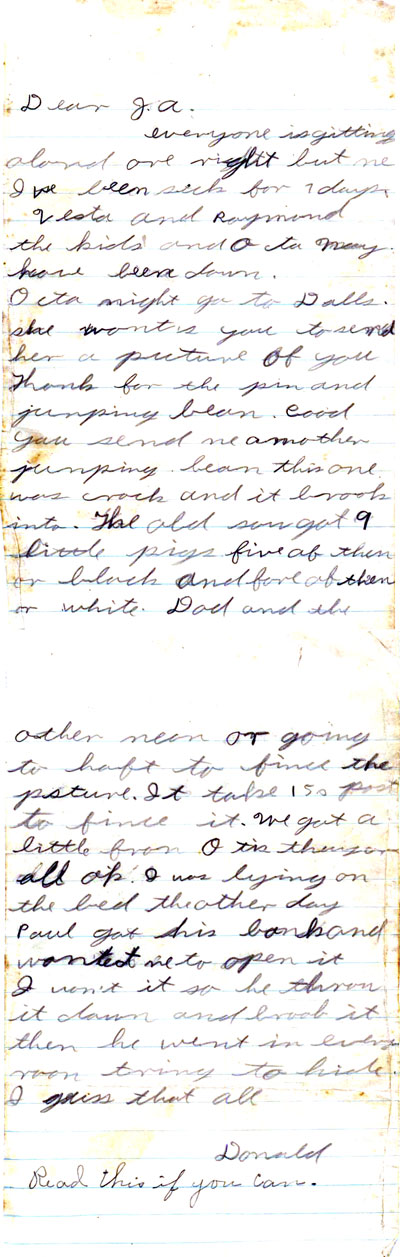 Dear J.A.
everyone is gitting
alond ore right but me
I ve been seck for 7 days.
Vesta and Raymond
the kids and Octa may
have been down.
Octa might go to Dalls.
she wonts you to send
her a picture of you
Thank for the pin and
jumping bean. Cood
you send me amother
jumping bean this one
was crack and it brook
into. The old sow got 9
little pigs five of then
or black and fore of then
or white. Dad and the
other mean or going
to haft to fince the
psture. It take 150 post
to fince it. We got a
little from Otis they or
all ok. I was lying on
the bed the other day
Paul got his bank and
wonted me to open it
I won't it so he thron
it down and broob it
then he went in every
roon tring to hide.
I guiss that all
Donald
Read this if you can.